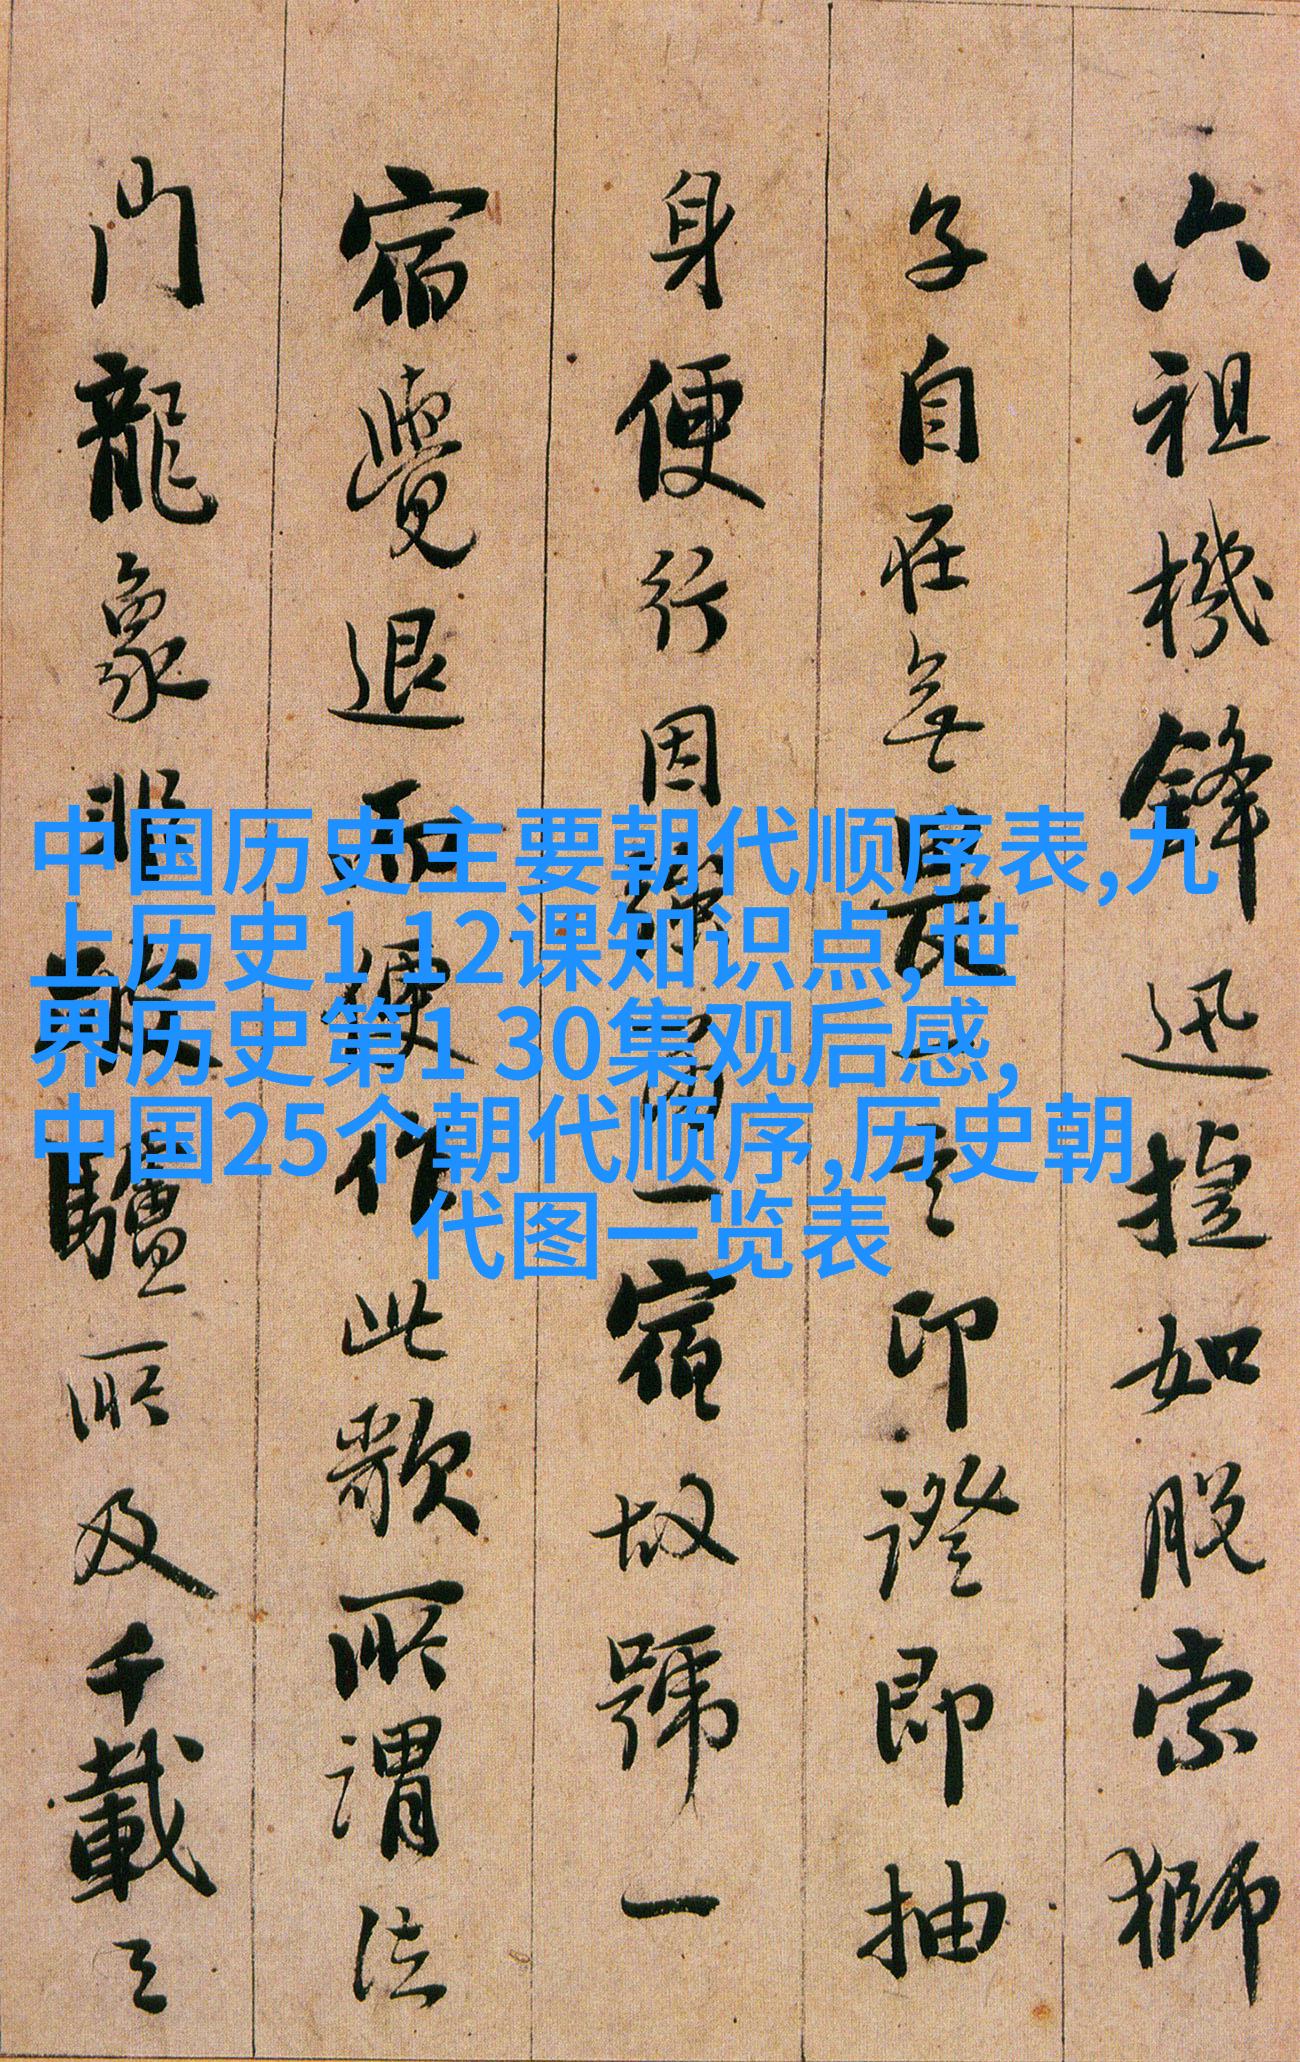 六祖機鋒迅捷如脱索獅
子自在無畏一言印證即抽
身便行因禪留一宿故號一
宿覺退而便作此歌所謂法
門龍象非跛驢所及千載之
中国历史主要朝代顺序表,九
上历史1 12课知识点,世
界历史第1 30集观后感,
中国25个朝代顺序,历史朝
代图一览表